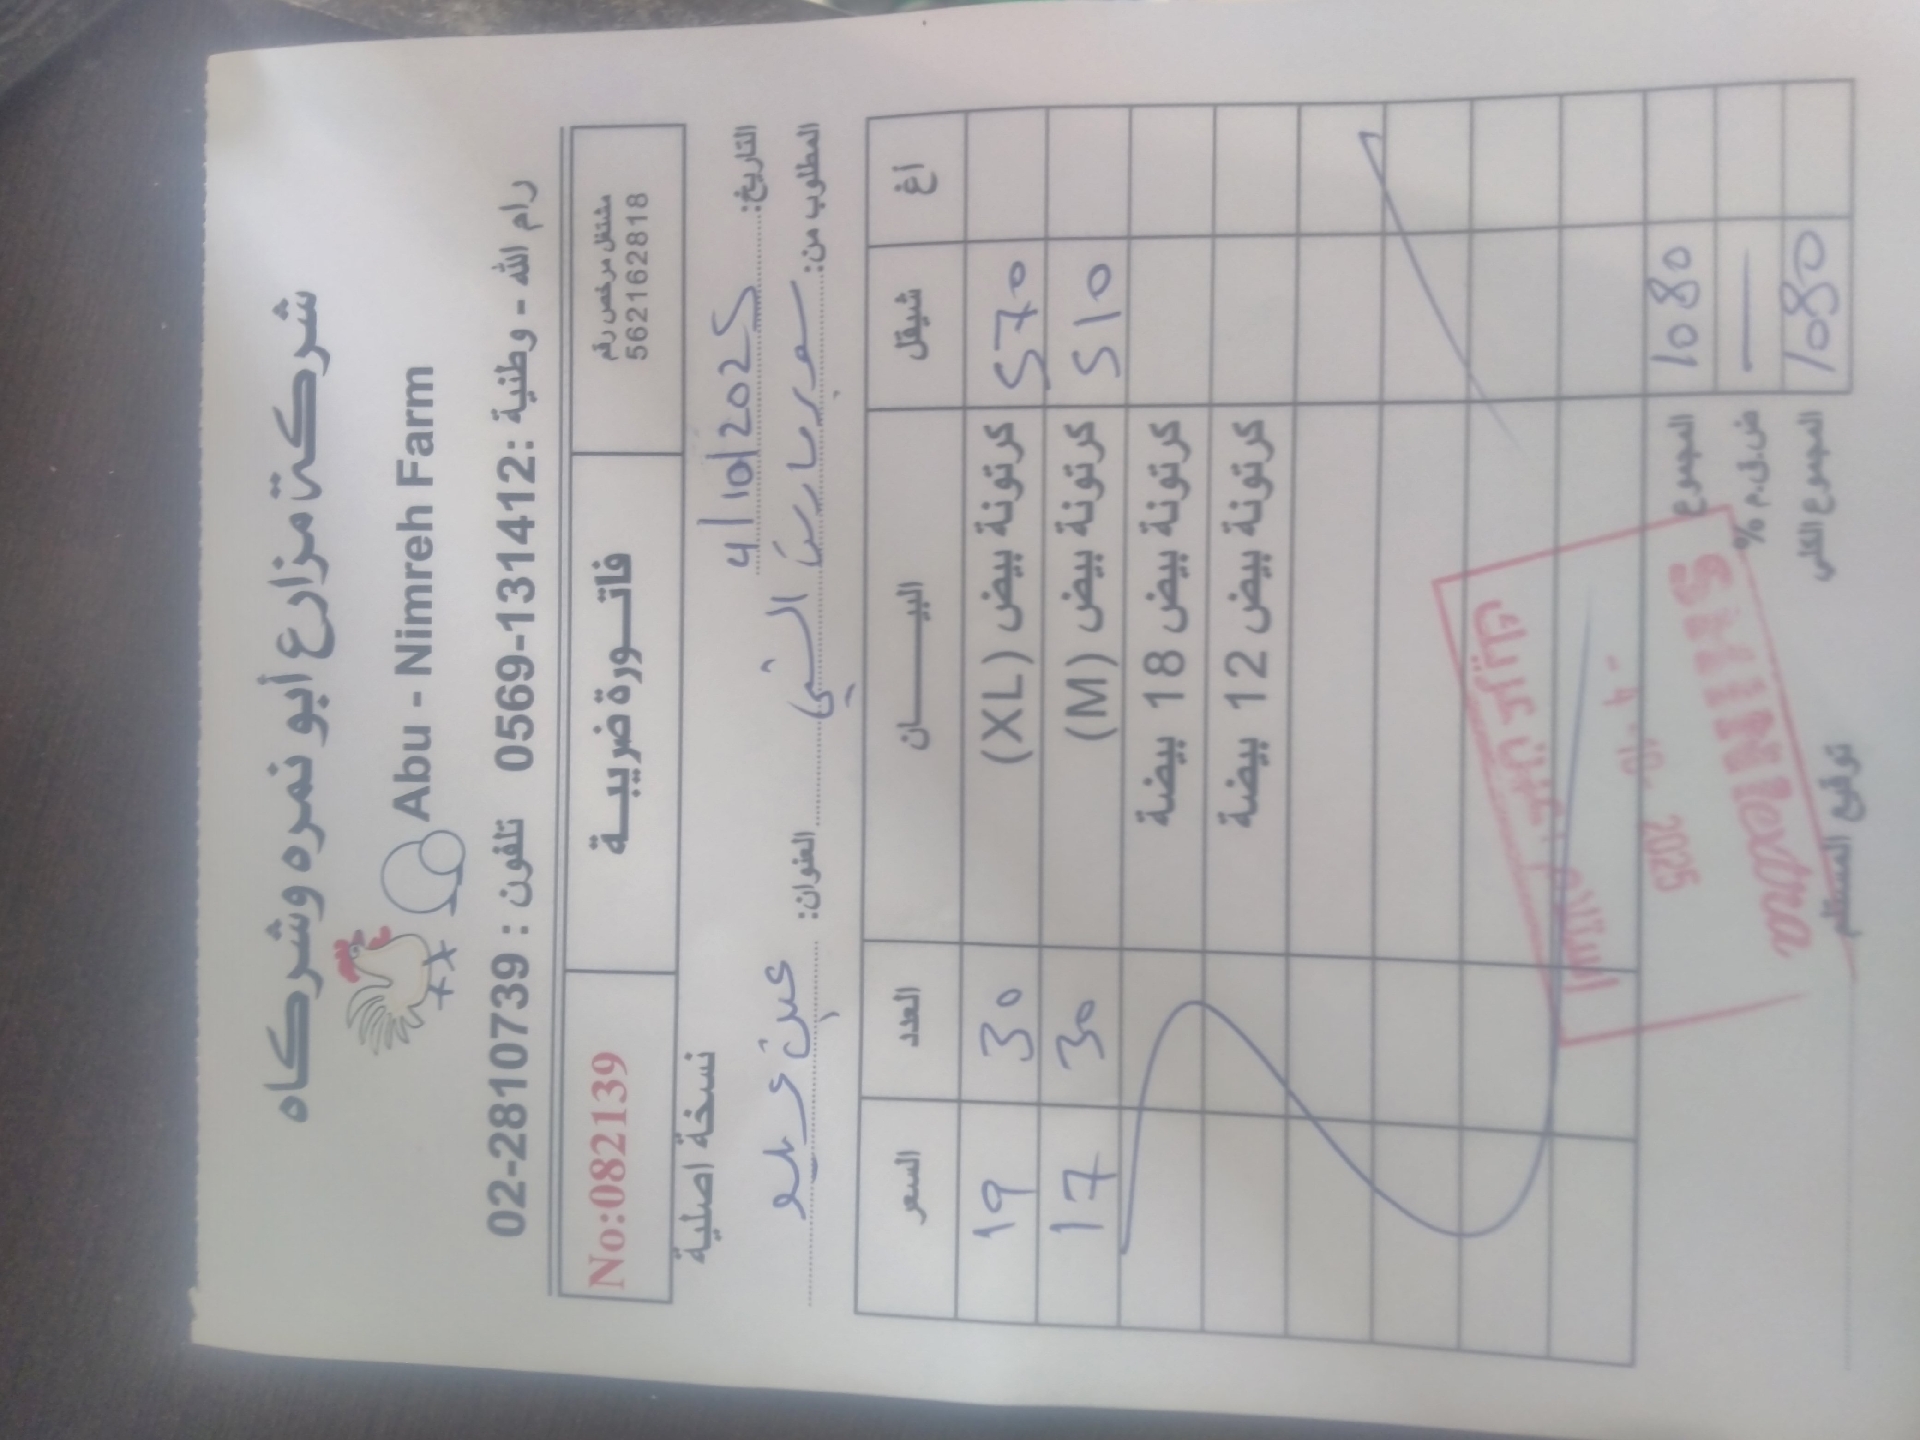 شركة مزارع أبو نمره وشركاه
Abu - Nimreh Farm
رام الله - وطنية : 0569-131412 تلفون : 02-2810739
مشتغل مرخص رقم
562162818
فاتورة ضريبية
No:082139
نسخة اصلية
التاريخ: 4/10/2025
المطلوب من: سوبرماركت العنوان: عين عريك
أغ شيقل البيان العدد السعر
570 كرتونة بيض (XL) 30 19
510 كرتونة بيض (M) 30 17
كرتونة بيض 18 بيضة
كرتونة بيض 12 بيضة
المجموع 1080
ض.ق.م % —
المجموع الكلي 1080
استلام / عين عريك
-4.-10- 2025
SHINIextra
توقيع المستلم